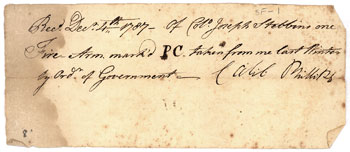 Recd. Decr. 4th 1787 – of Colo. Joseph Stebbins one
Fire Arm mark'd PC. taken from me last Winter
by Ordr. of Government – Caleb Phillips
8